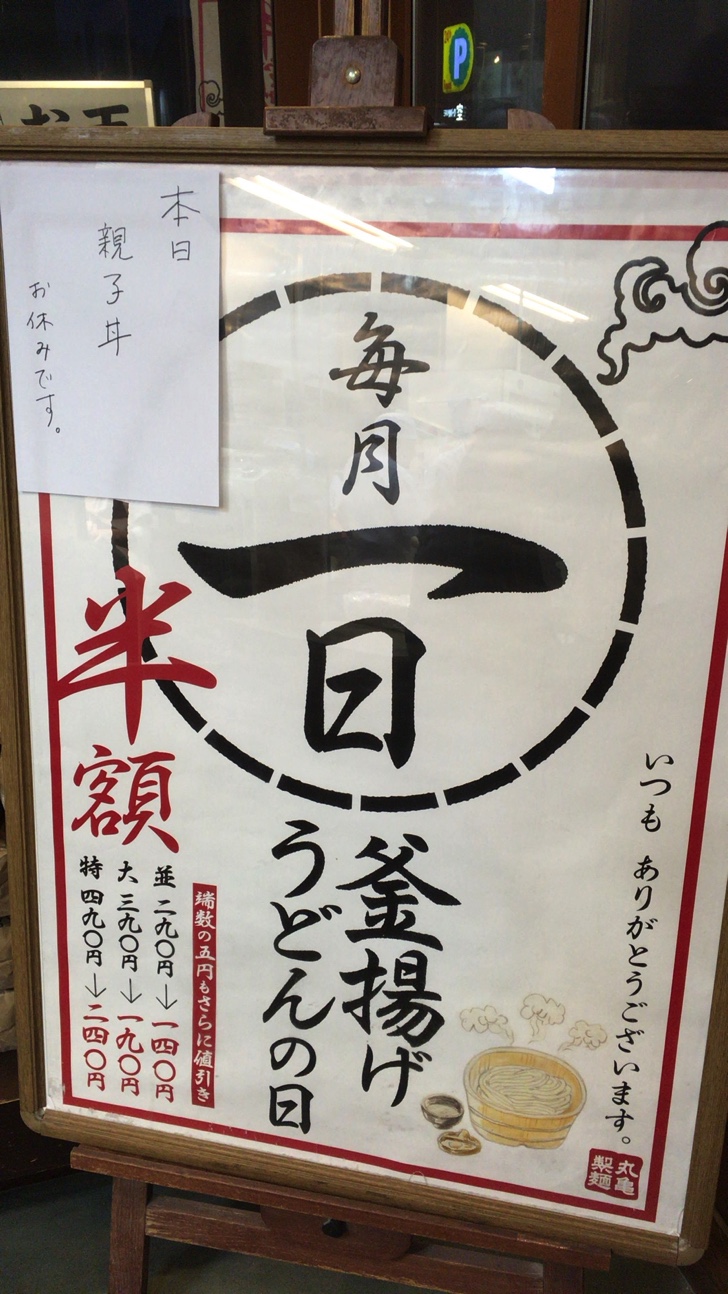 本日
親子丼
お休みです。
毎月
一
日
釜揚げ
うどんの日
半額
端数の五円もさらに値引き
並 二九〇円→一四〇円
大 三九〇円→一九〇円
特 四九〇円→二四〇円
いつも ありがとうございます。
丸亀
製麺
P